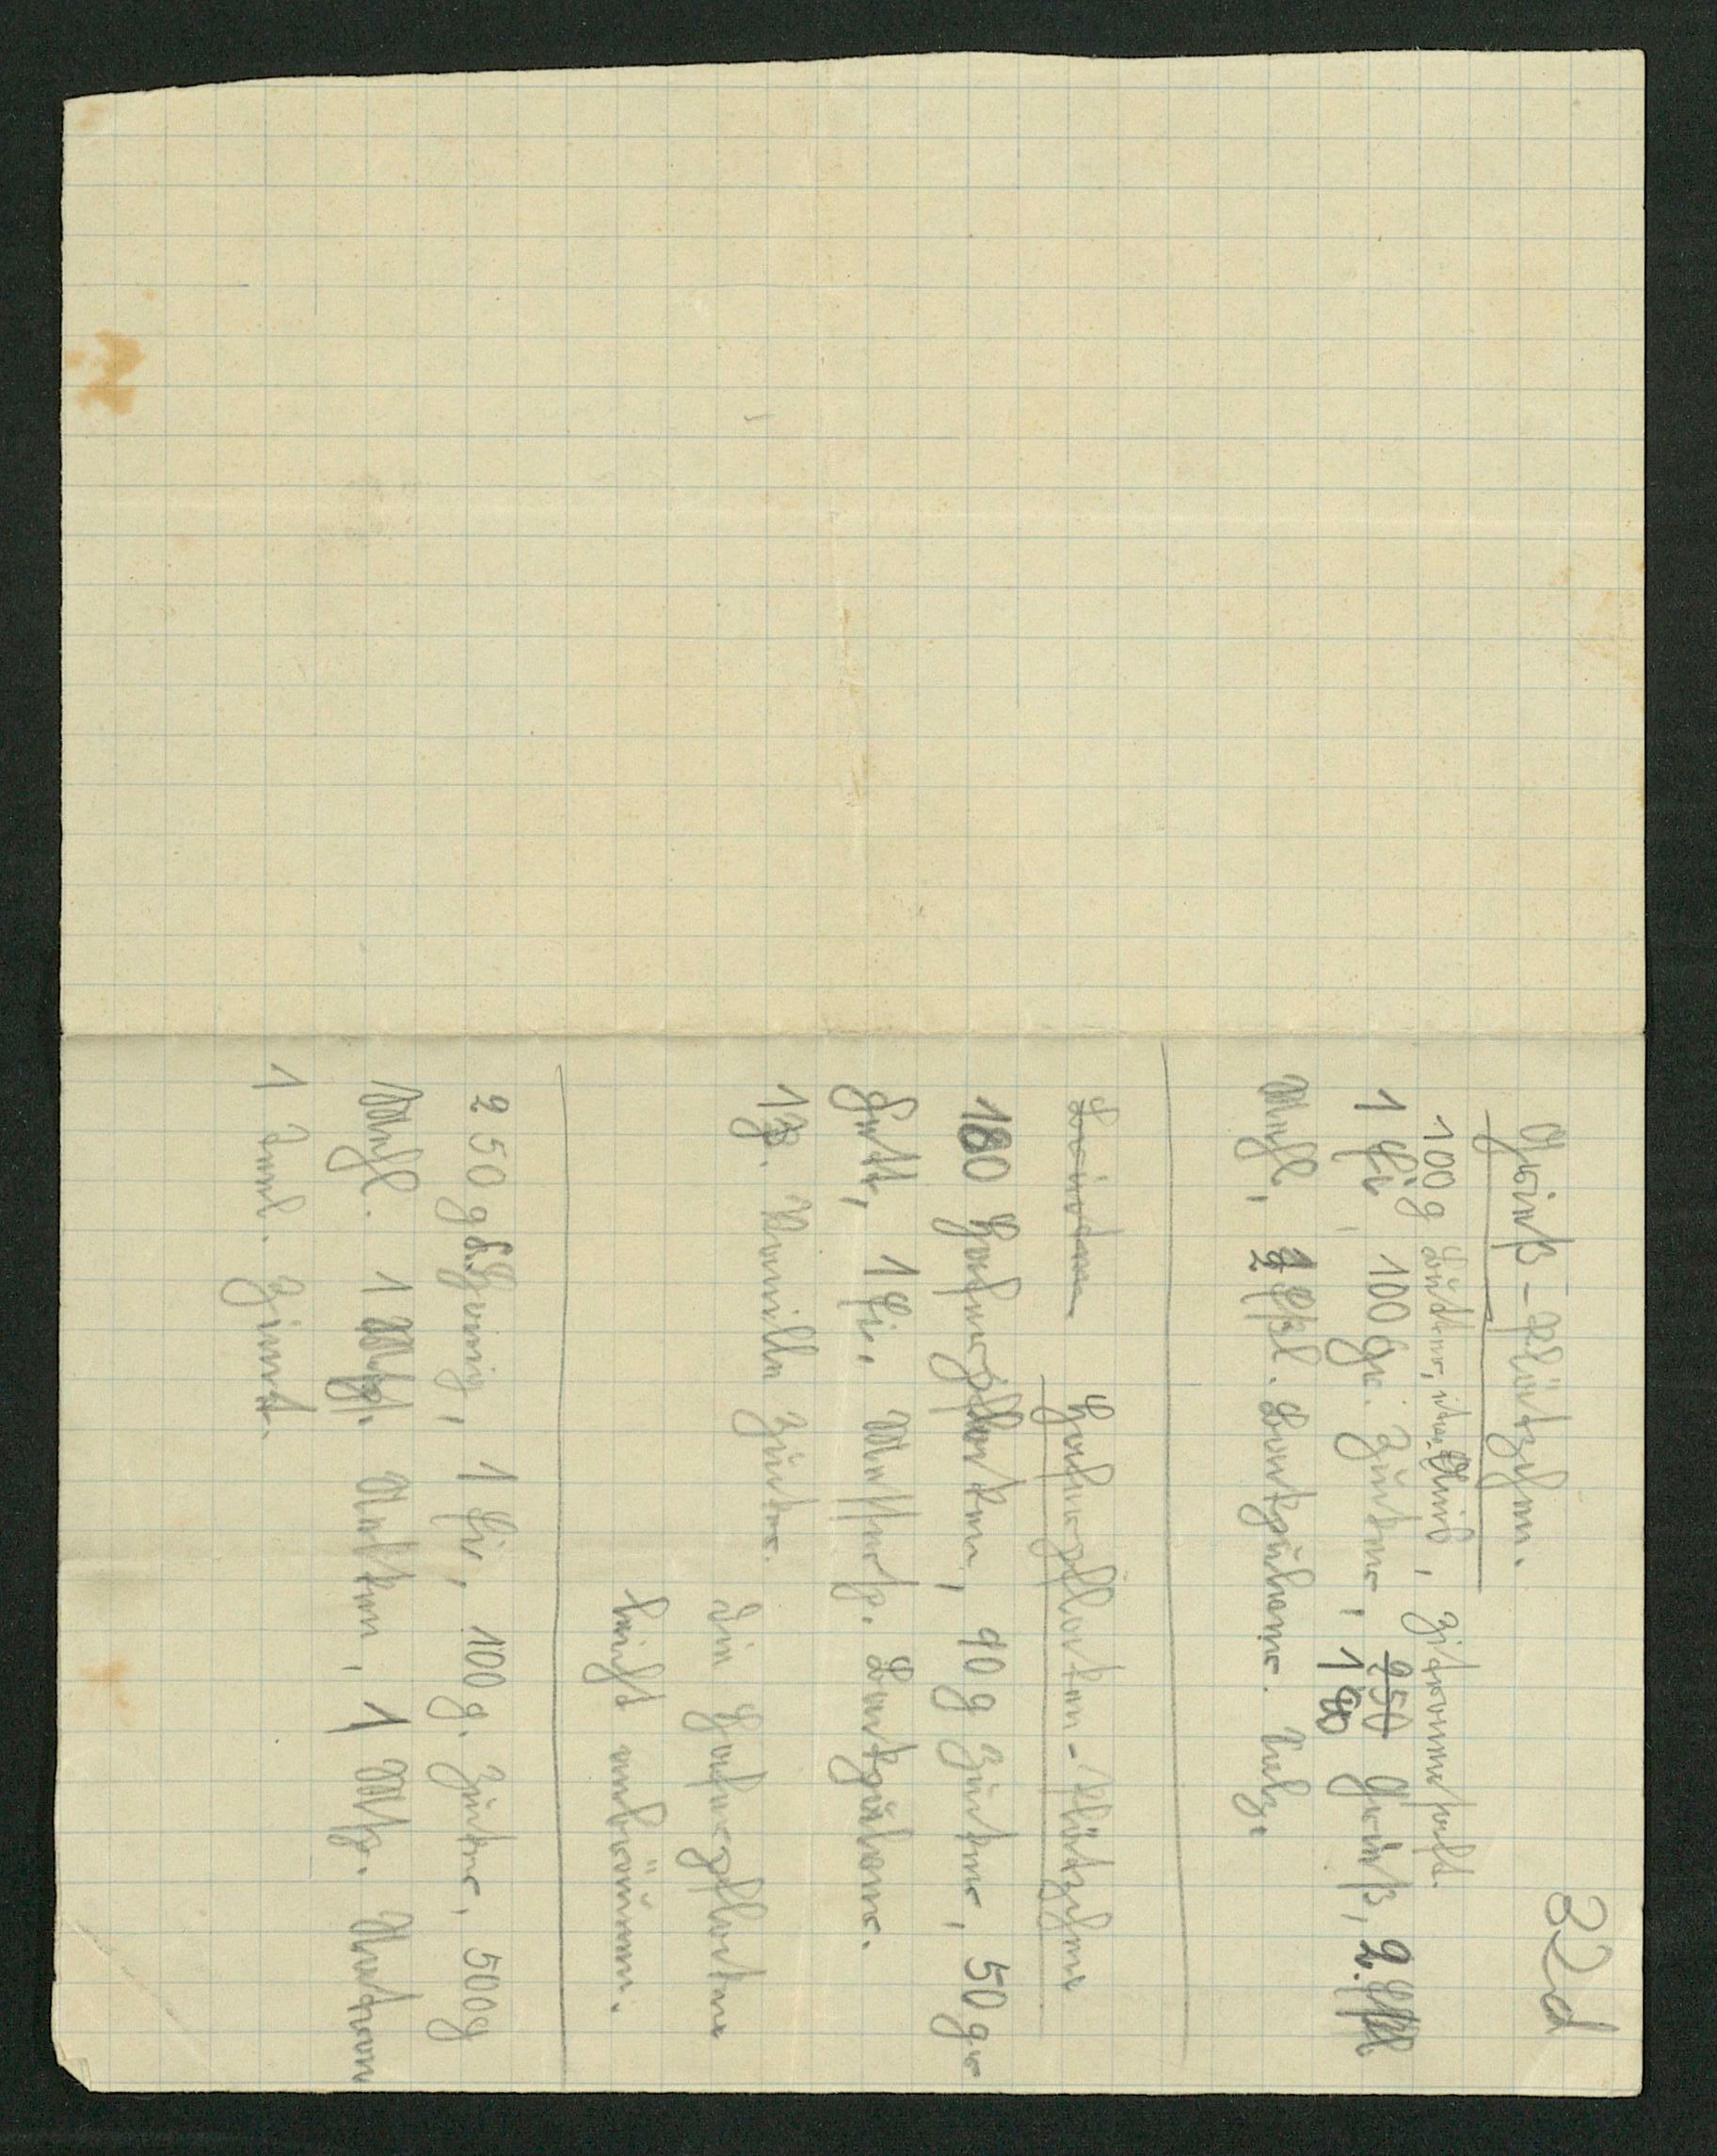 32d
Grieß-Plätzchen.
100 g Butter, etw. Anis, Zitronensaft.
1 Ei, 100 gr. Zucker, 250 Grieß, 2 Eßl
180
Mehl, ½ Eßl. Backpulver. Salz.
Haferflocken-Plätzchen
180 Haferflocken, 90 g Zucker, 50 gr
Fett, 1 Ei, Messersp. Backpulver.
1 Vanille Zucker.
Die Haferflocken
leicht anbräunen.
250 g Honig, 1 Ei, 100 g. Zucker, 500 g
Mehl. 1 Msp. Nelken, 1 Msp. Natron
1 Zimt.